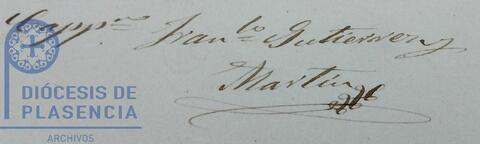 Capp.ⁿ Fran.co Gutierrez
Martin
DIÓCESIS DE
PLASENCIA
ARCHIVOS